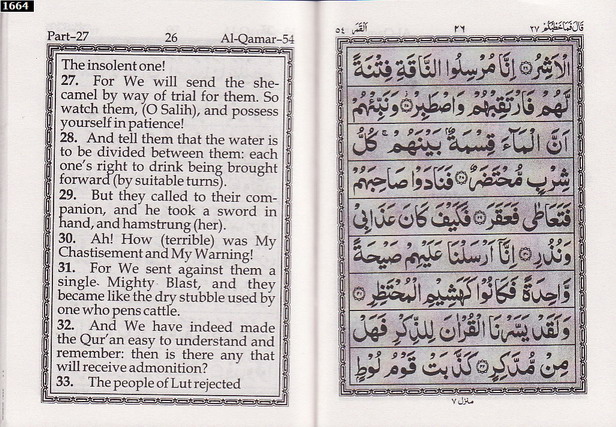 1664
Part–27 26 Al-Qamar–54
The insolent one!
27. For We will send the she-
camel by way of trial for them. So
watch them, (O Salih), and possess
yourself in patience!
28. And tell them that the water is
to be divided between them: each
one's right to drink being brought
forward (by suitable turns).
29. But they called to their com-
panion, and he took a sword in
hand, and hamstrung (her).
30. Ah! How (terrible) was My
Chastisement and My Warning!
31. For We sent against them a
single Mighty Blast, and they
became like the dry stubble used by
one who pens cattle.
32. And We have indeed made
the Qur'an easy to understand and
remember: then is there any that
will receive admonition?
33. The people of Lut rejected
قَالَ فَمَا خَطْبُكُمْ ٢٧ ٢٦ القمر ٥٤
الْاَشِرُ ﴿٢٦﴾ اِنَّا مُرْسِلُوا النَّاقَةِ فِتْنَةً
لَّهُمْ فَارْتَقِبْهُمْ وَاصْطَبِرْ ﴿٢٧﴾ وَنَبِّئْهُمْ
اَنَّ الْمَآءَ قِسْمَةٌۢ بَيْنَهُمْ ۚ كُلُّ
شِرْبٍ مُّحْتَضَرٌ ﴿٢٨﴾ فَنَادَوْا صَاحِبَهُمْ
فَتَعَاطٰى فَعَقَرَ ﴿٢٩﴾ فَكَيْفَ كَانَ عَذَابِيْ
وَنُذُرِ ﴿٣٠﴾ اِنَّآ اَرْسَلْنَا عَلَيْهِمْ صَيْحَةً
وَّاحِدَةً فَكَانُوْا كَهَشِيْمِ الْمُحْتَظِرِ ﴿٣١﴾
وَلَقَدْ يَسَّرْنَا الْقُرْاٰنَ لِلذِّكْرِ فَهَلْ
مِنْ مُّدَّكِرٍ ﴿٣٢﴾ كَذَّبَتْ قَوْمُ لُوْطٍۭ
منزل ٧